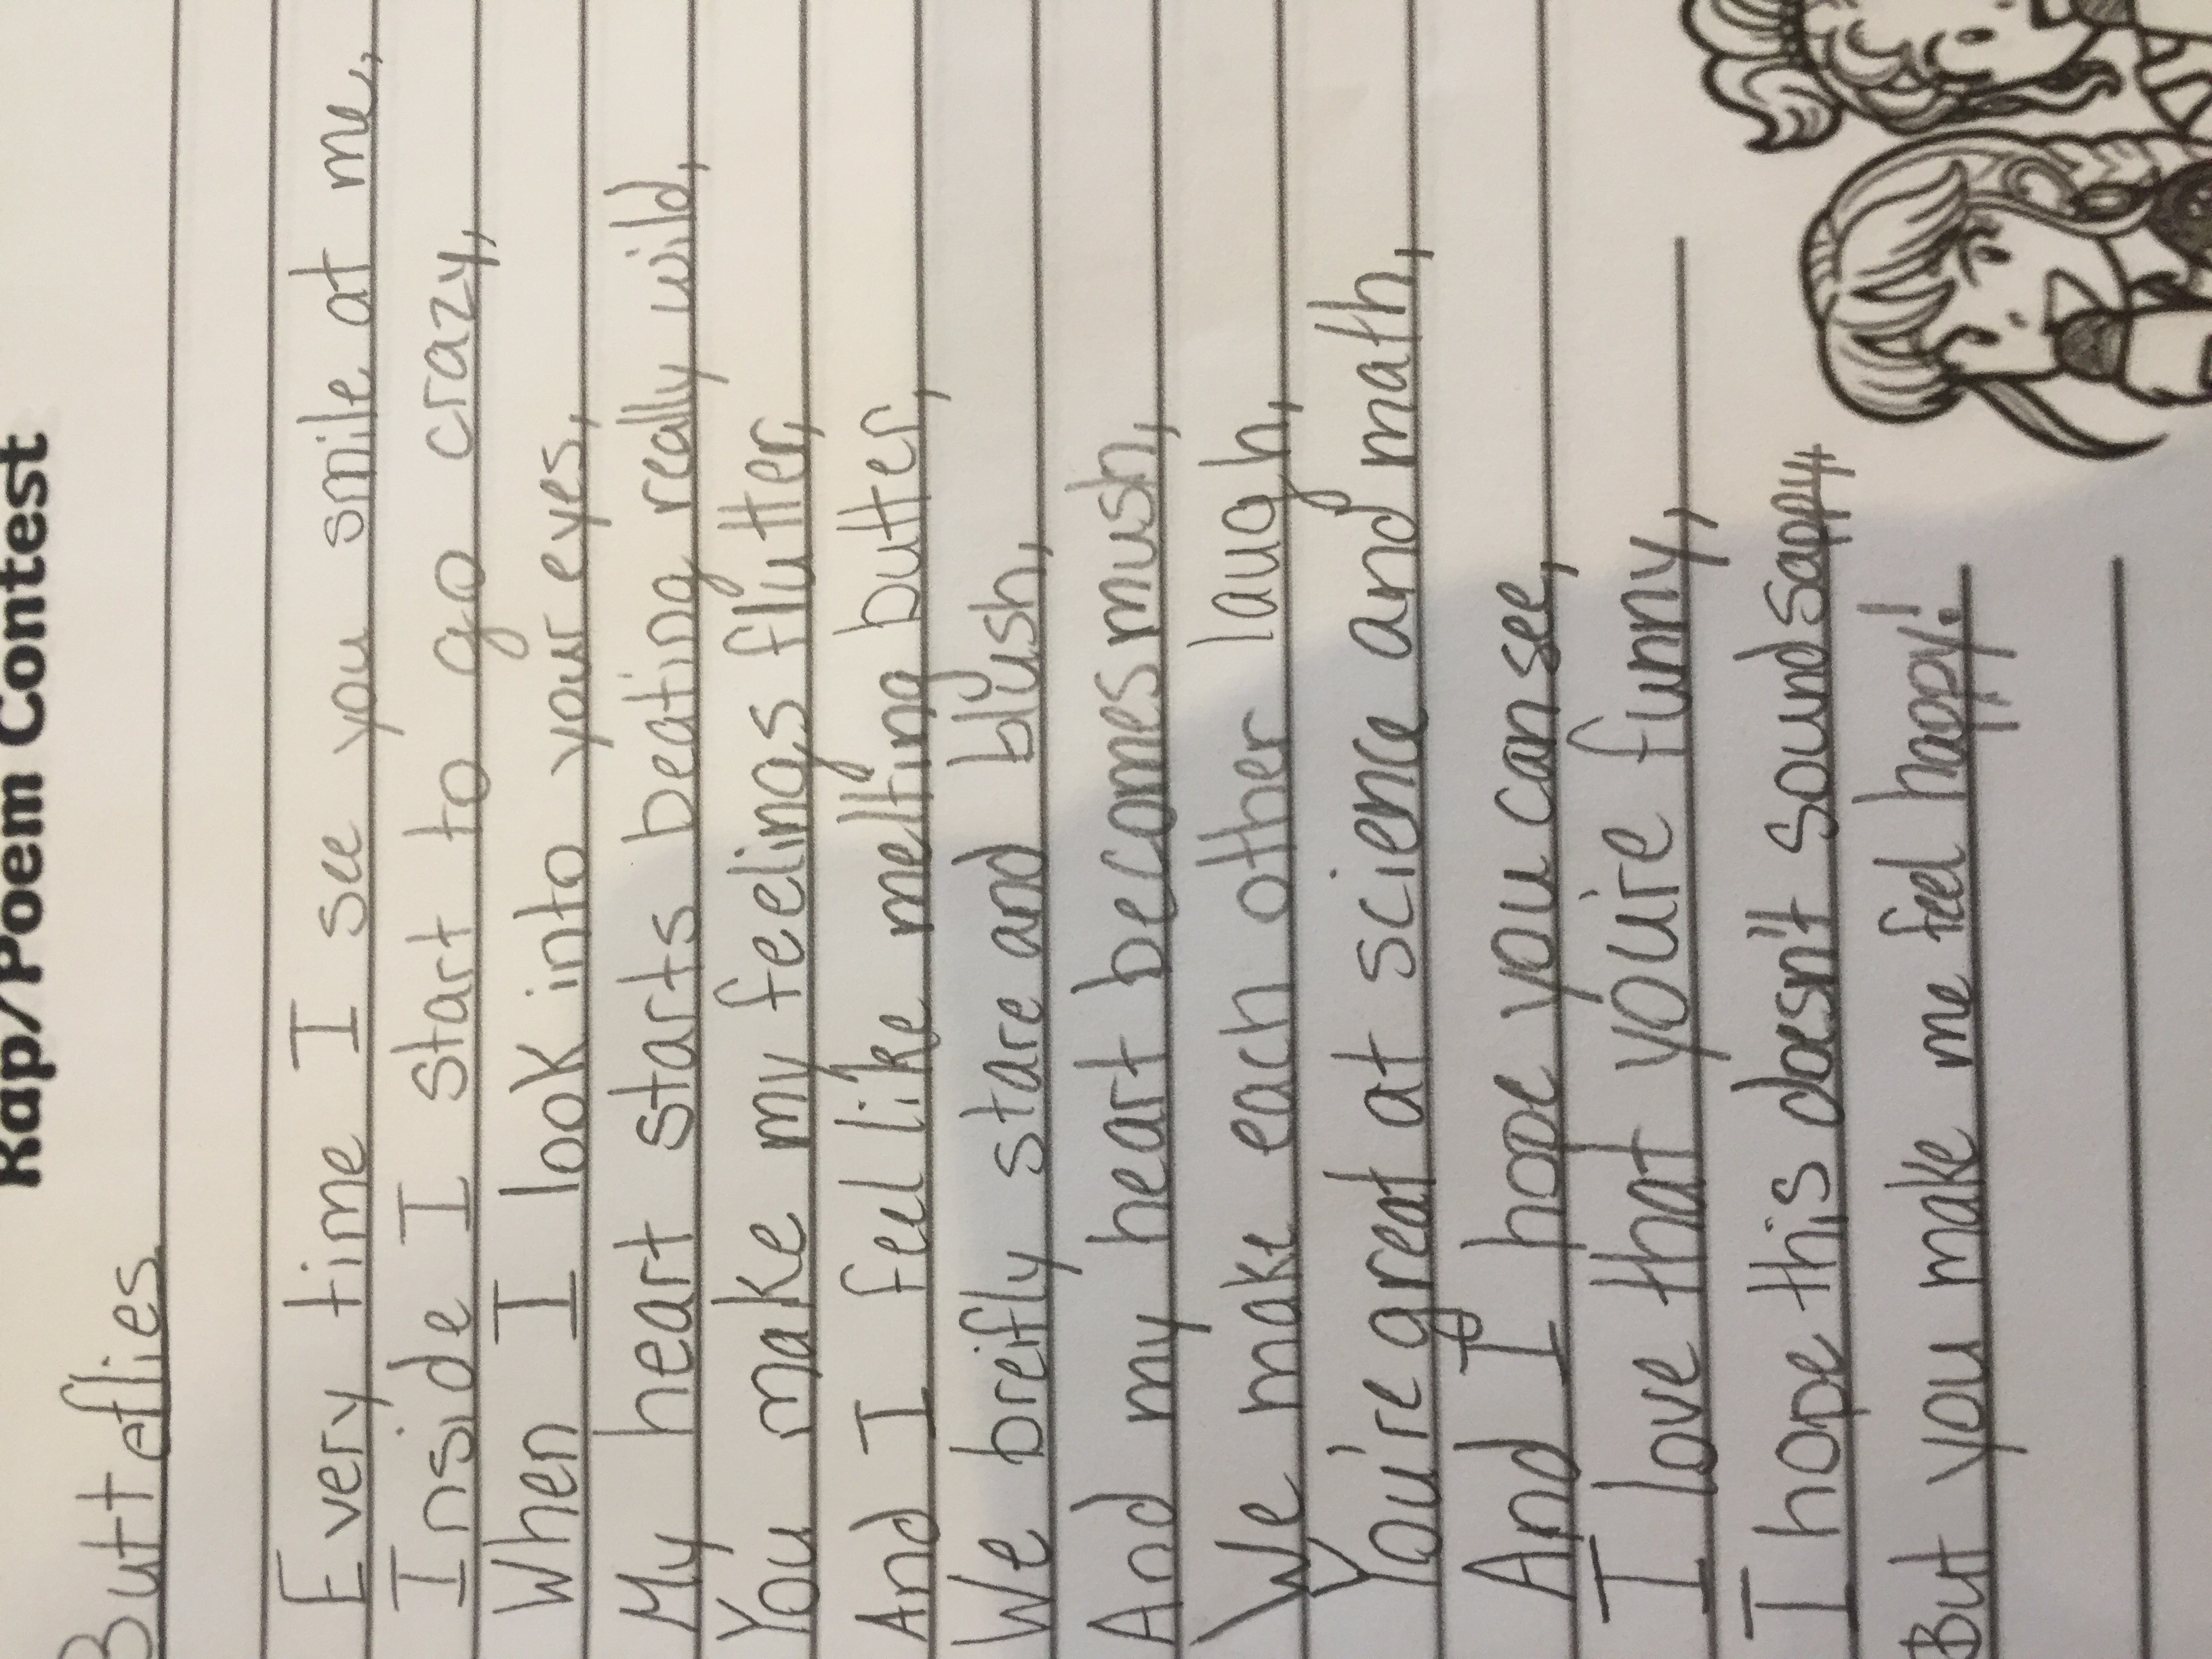 Rap/Poem Contest
Butteflies
Every time I see you smile at me,
Inside I start to go crazy,
When I look into your eyes,
My heart starts beating really wild,
You make my feelings flutter,
And I feel like mellting butter,
We breifly stare and blush,
And my heart becomes mush,
We make each other laugh,
You're great at science and math,
And I hope you can see,
I love that you're funny,
I hope this doesn't sound sappy,
But you make me feel happy!